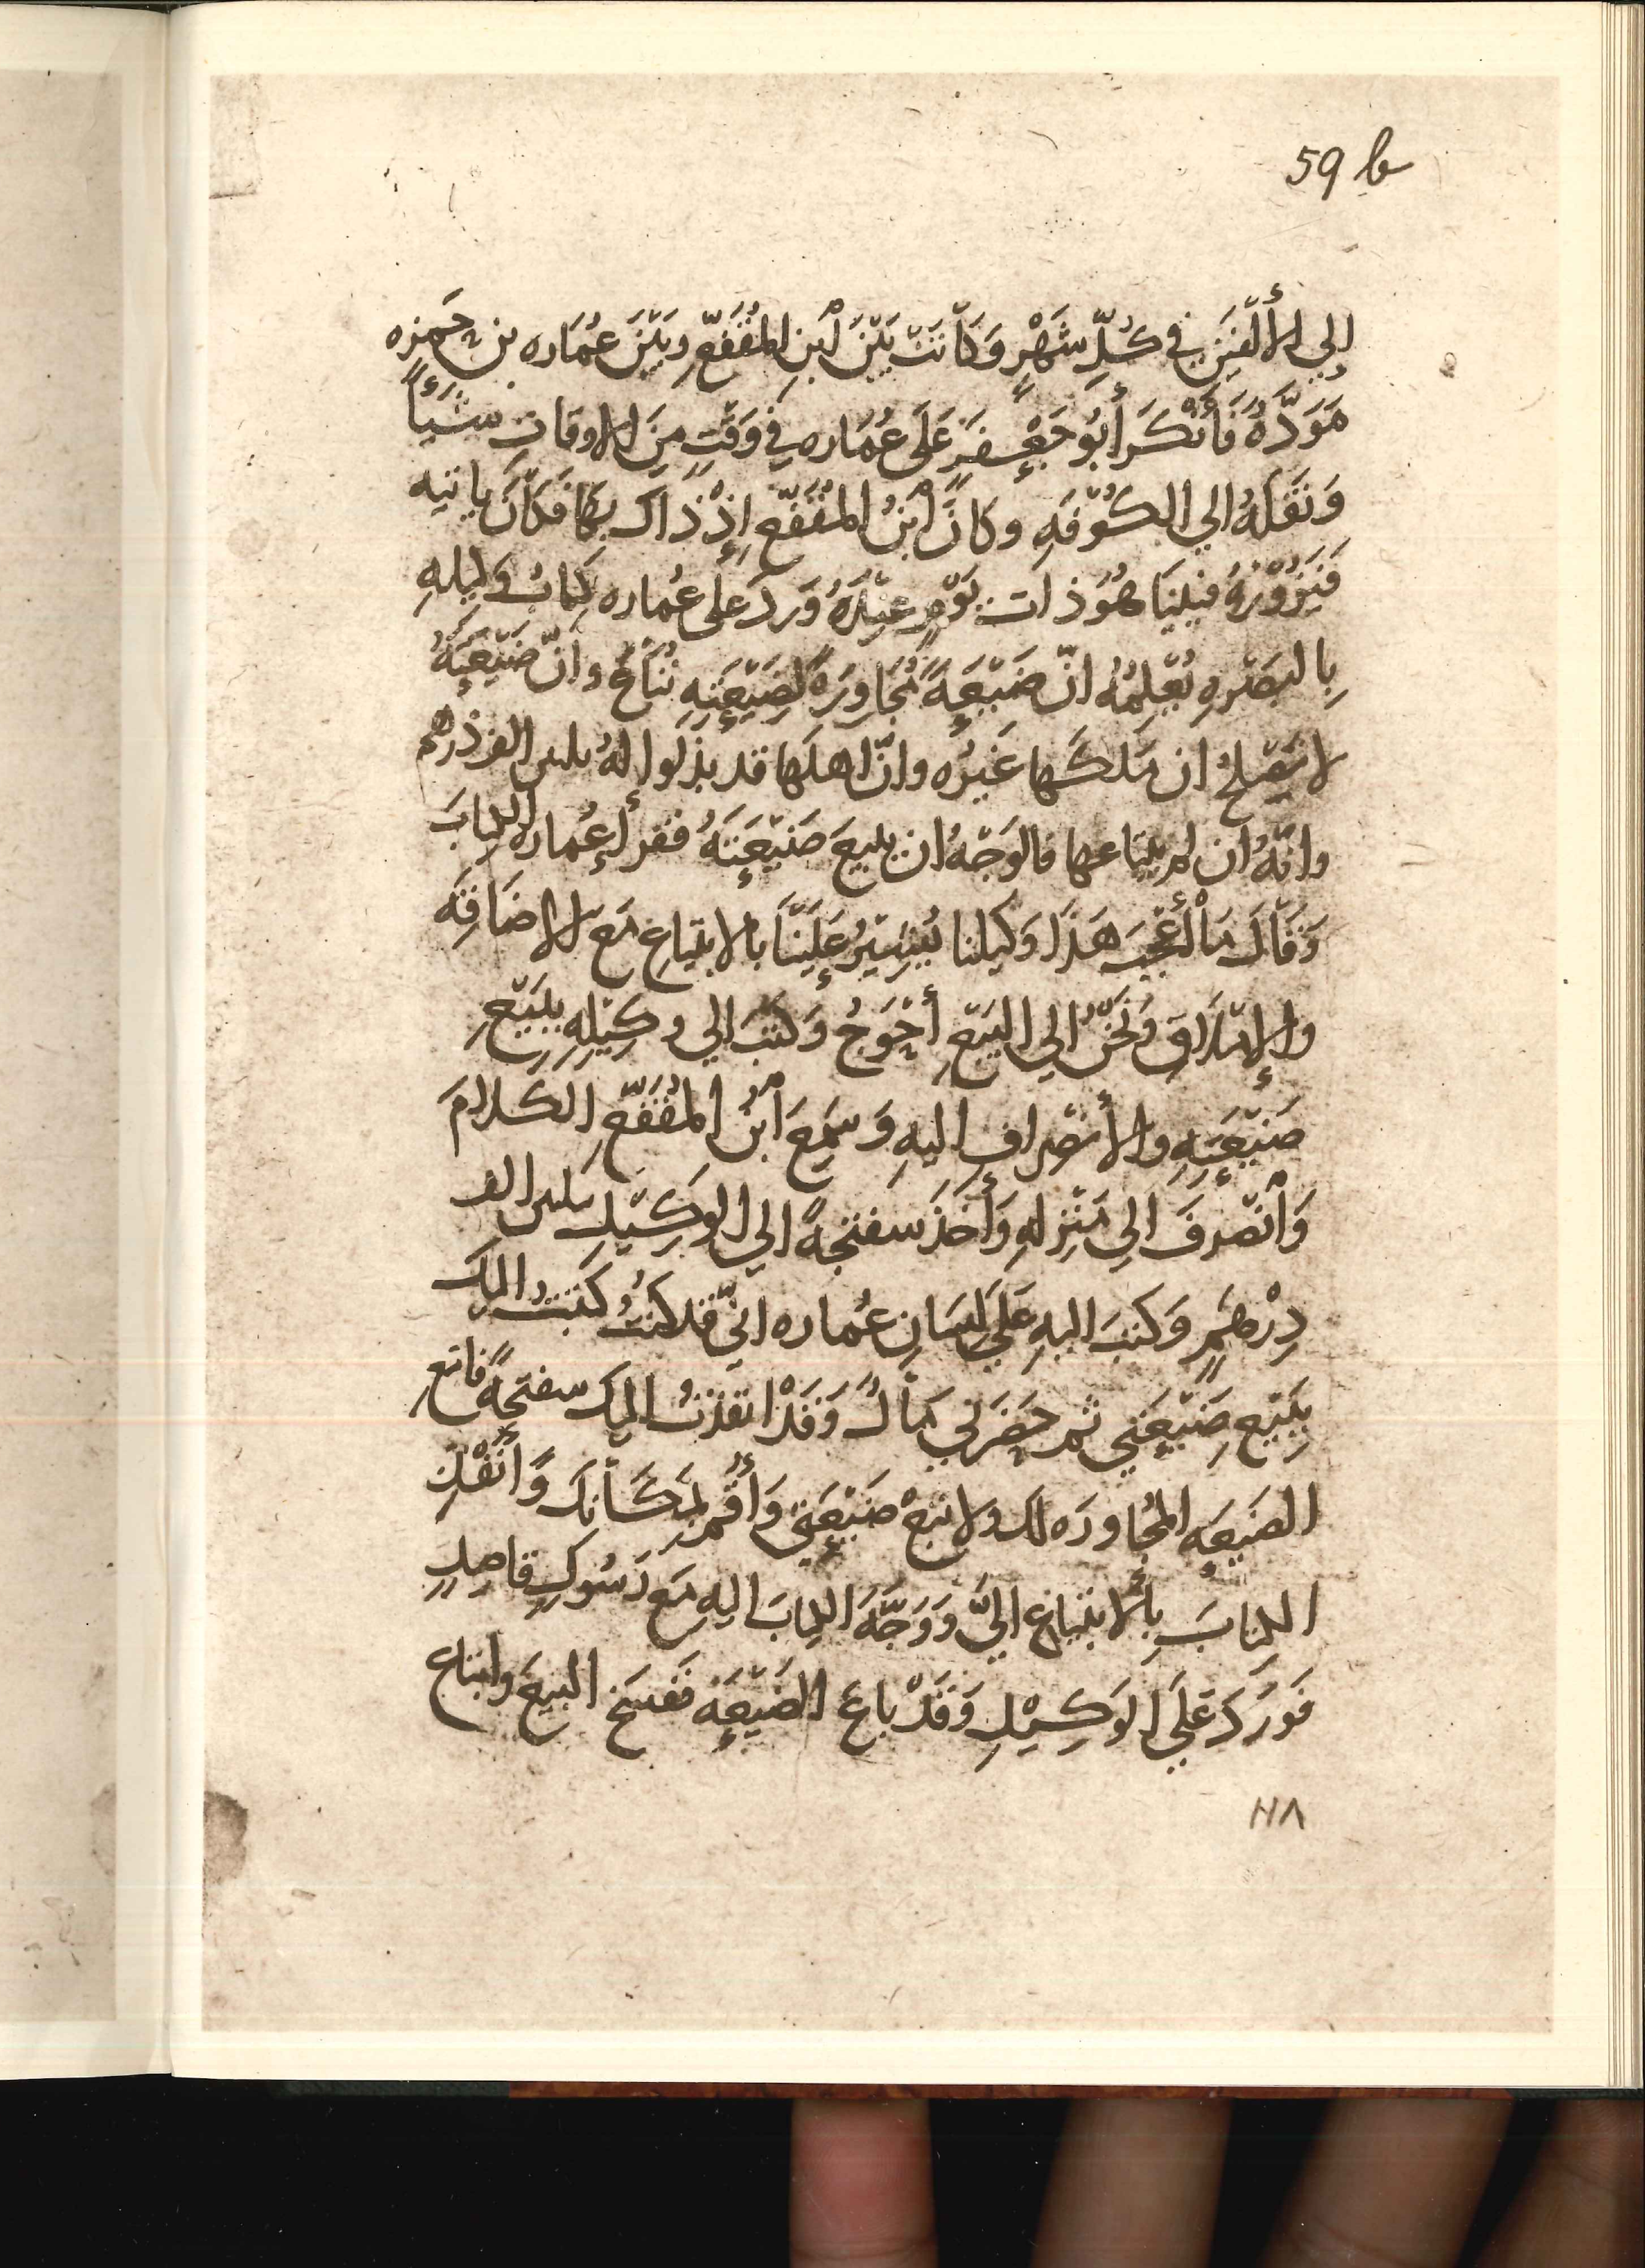 59 b
إلي الأَلْفَيْنِ في كُلِّ شَهْرٍ وَكَانَتْ بَيْنَ اْبنِ المُقَفَّعِ وَبَيْنَ عُمَاره بن حَمزه
مَوَدَّةٌ فَأَنْكَرَ أَبُو جَعْفَرٍ عَلَى عُمَاره في وَقْتٍ مِنَ الاوقاتِ شَيْئًا
وَنَقَلَهُ الي الكُوْفَهِ وكانَ اْبنُ المُقَفَّعِ إِذْ ذَاكَ بِهَا فَكَانَ يَاتيه
فَيَزُوْرُهُ فبَيْنَا هُوَ ذات يَوْمٍ عِنْدَهُ وَرَدَ عَلى عُماره كِتَابُ وَكِيلِهِ
بِالبَصْرهِ يُعْلِمُهُ انّ ضَيْعَةً مُجَاوِرَةً لِضَيْعَتِهِ تُبَاعُ وانّ ضَيْعَتَهُ
لا تَصْلحُ ان مَلكَها غَيْرُه وانّ اهلَها قد بذَلوا لهُ بثلثين الف دِرْهم
وانّهُ ان لم يبتاعها فالوَجْهُ ان يبيعَ ضَيْعَتَهُ فقرأ عُماره الكِتابَ
وَقَالَ مَا أَعْجَبَ هَذَا وَكيلنا يُشِيْرُ عَلَيْنَا بالابتياعِ مَع الاضَاقَه
والإِمْلَاقِ وَنَحْنُ الي البَيْعِ أَحْوَجُ وَكَتَبَ الي وَكِيْلِهِ بِبَيْعِ
ضَيْعَتِهِ والأنصْرافِ اليهِ وَسَمِعَ اْبنُ المُقَفَّعِ الكلامَ
وَاْنْصَرفَ الي مَنْزِلهِ وَأَخَذَ سفتجهً الي الوَكِيْلِ بثلثين الف
دِرْهَمٍ وَكتبَ اليهِ عَلَي لِسَانِ عُماره انّي قد كُنتُ كَتَبتُ اليكَ
بِبَيْعِ ضَيْعَتِي ثم حَضَرَني مَالٌ وَقَدْ انفَذتُ اليك سفتجهً فابتعِ
الضيعهَ المُجاورَه لك ولا تَبعْ ضَيْعَتِي وَأَقُمْ بمَكَانِكَ وَأَنْفِذ
الكِتابَ بِالابتياعِ اليَّ وَوَجَّهَ الكِتابَ اليهِ مَع رَسُولٍ قاصِدٍ
فَوَرَدَ عَلَي الوَكِيْلِ وَقَدْ باعَ الضَيْعَه فَفَسَخ البيعَ وابتاع
١١٨